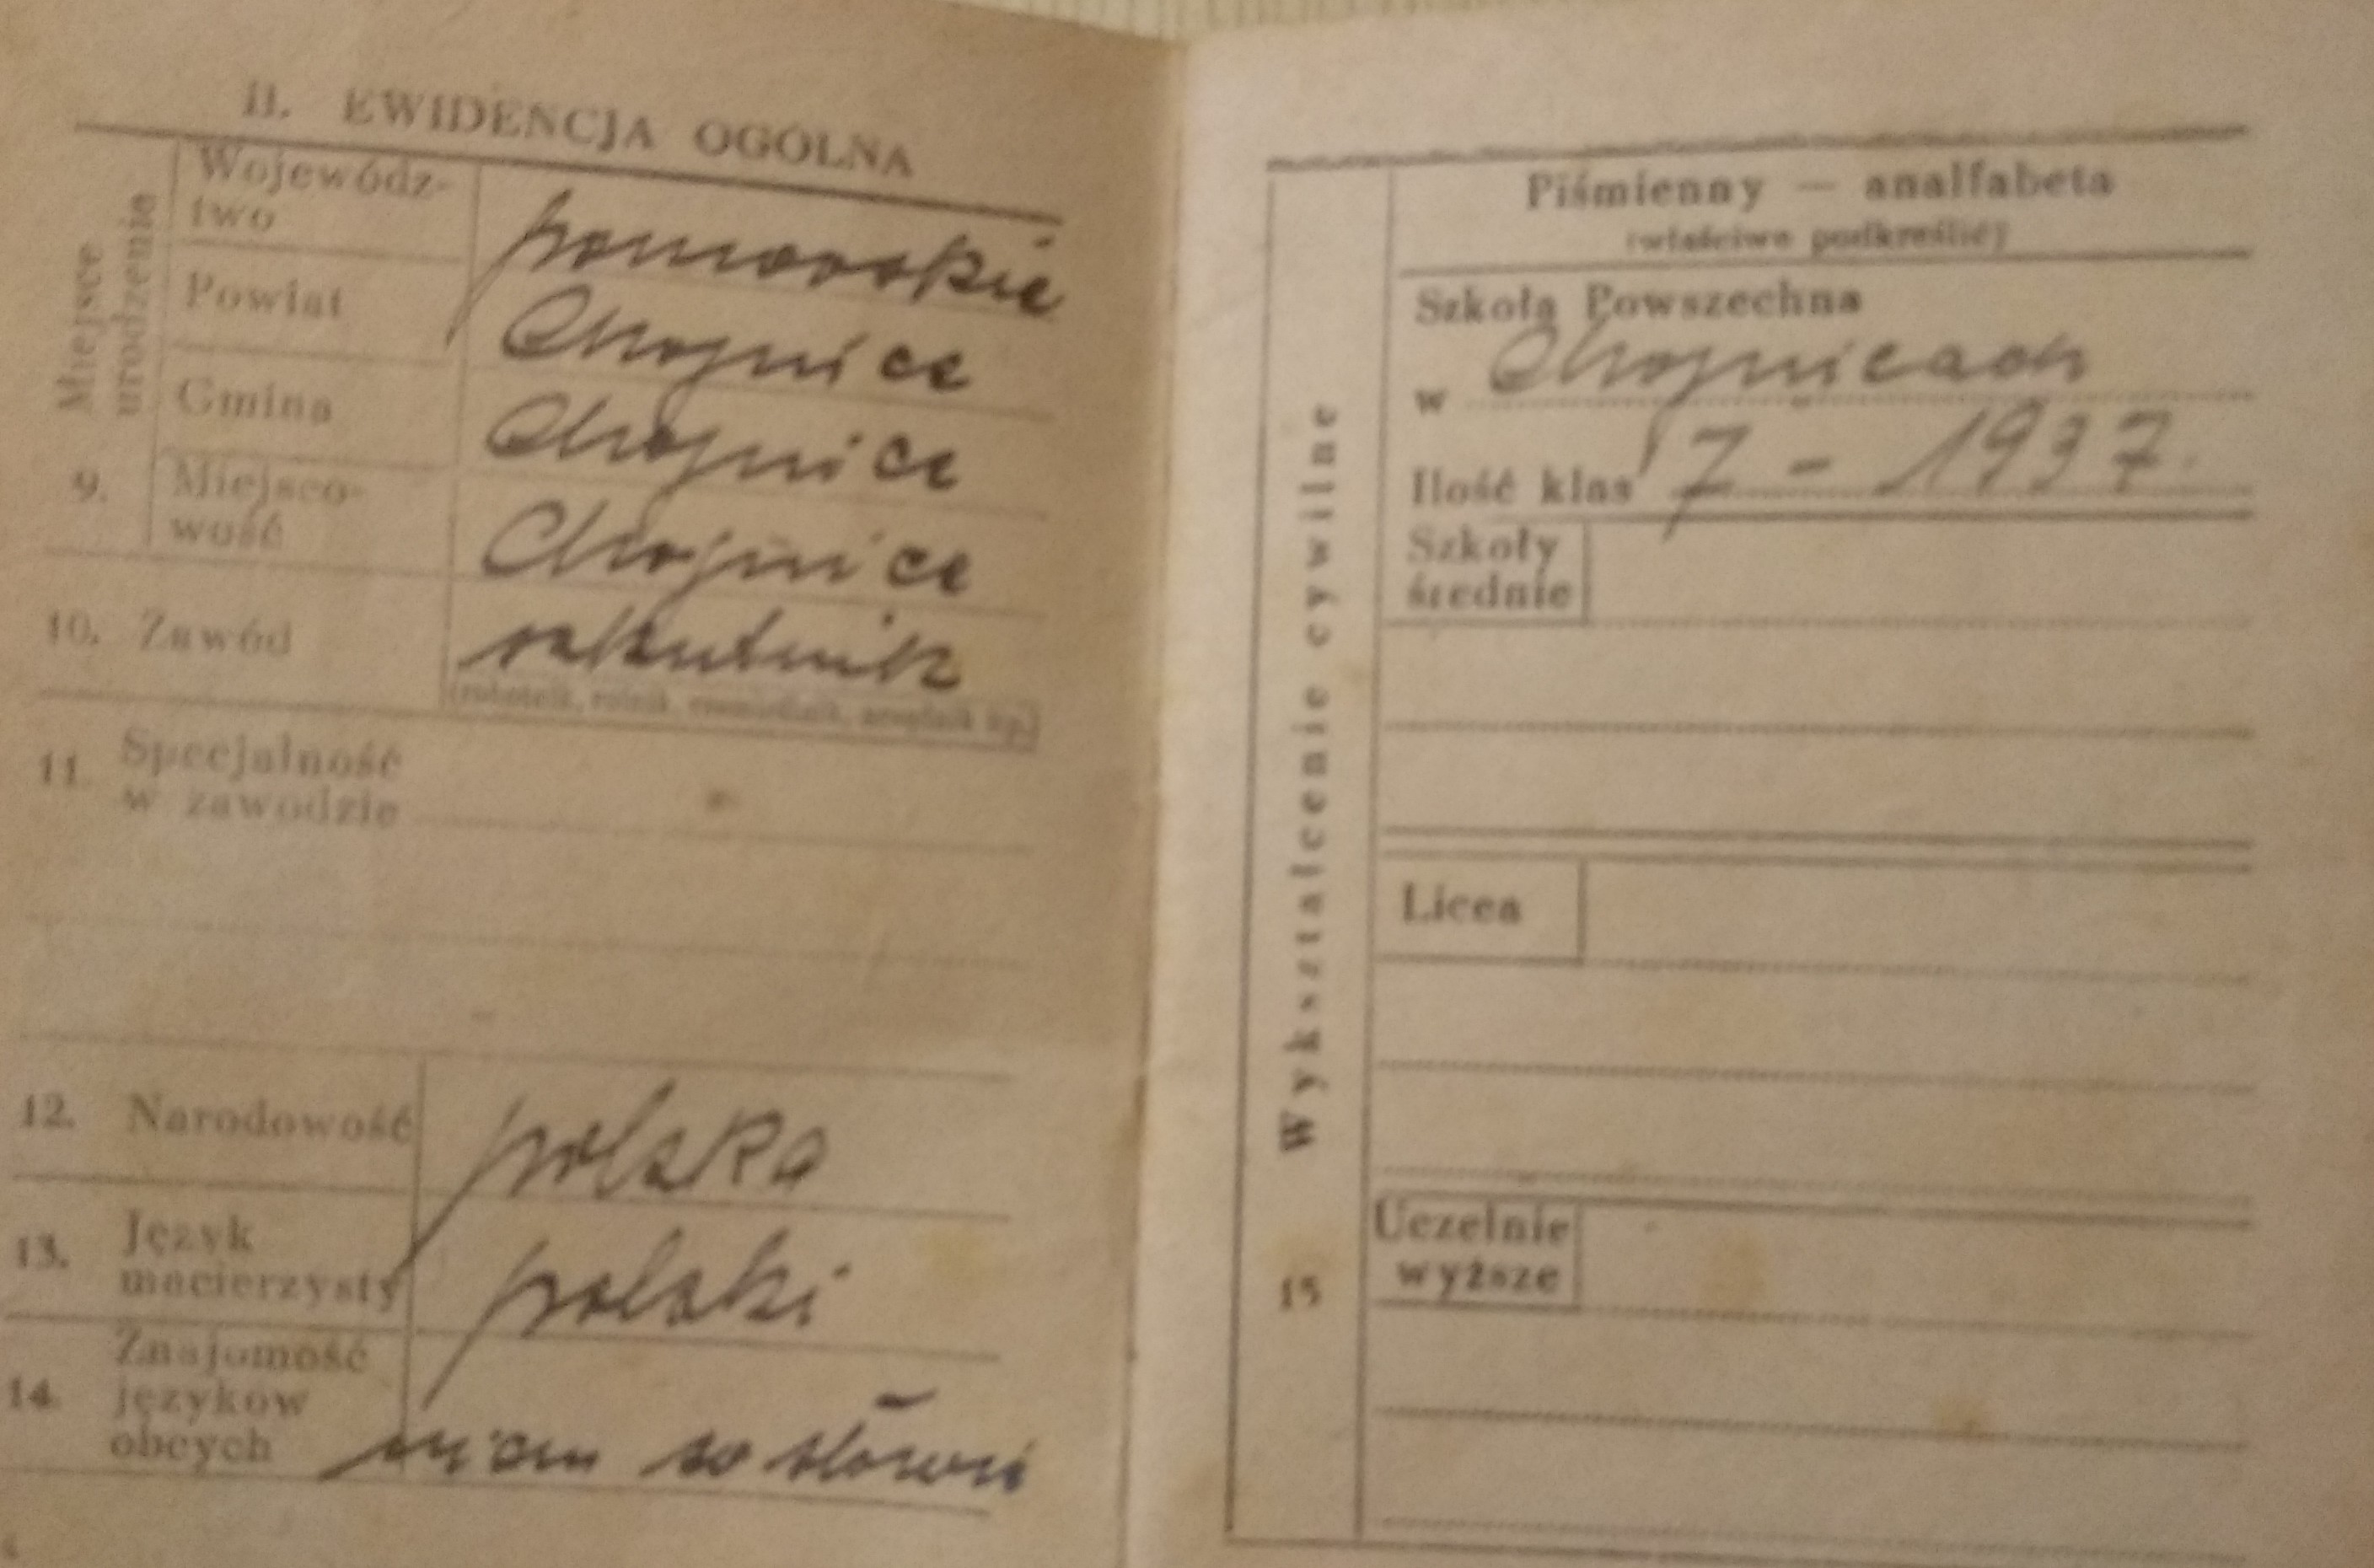 II. EWIDENCJA OGÓLNA
Miejsce urodzenia
Wojewódz-
two
pomorskie
Powiat
Chojnice
Gmina
Chojnice
9. Miejsco-
wość
Chojnice
10. Zawód
(robotnik, rolnik, rzemieślnik, urzędnik itp.)
11. Specjalność
w zawodzie
12. Narodowość polska
13. Język
macierzysty polski
14. Znajomość
języków
obcych niem. w słowie
Piśmienny — analfabeta
(właściwe podkreślić)
Szkoła Powszechna
w Chojnicach
Ilość klas 7 - 1937
Szkoły
średnie
Licea
Uczelnie
wyższe
15 Wykształcenie cywilne